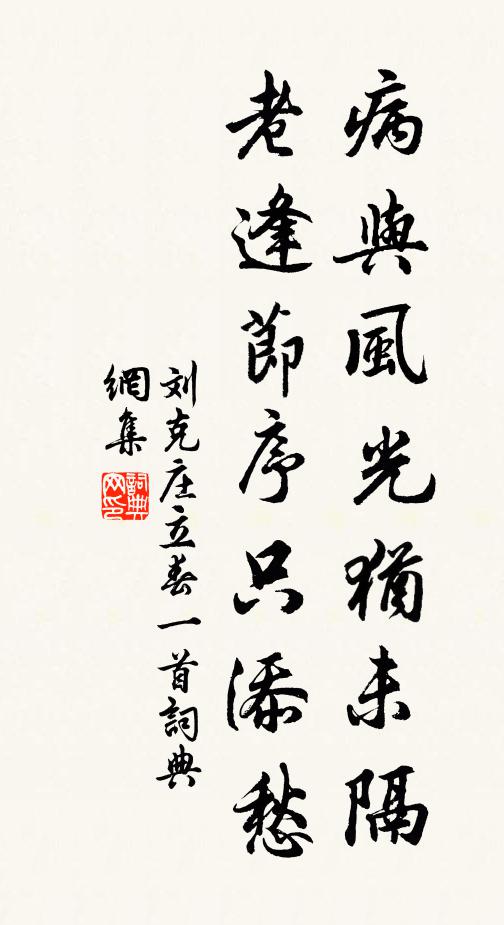 病與風光猶未隔
老逢節序只添愁
刘克庄立春一首詞典
網集
詞典
网印